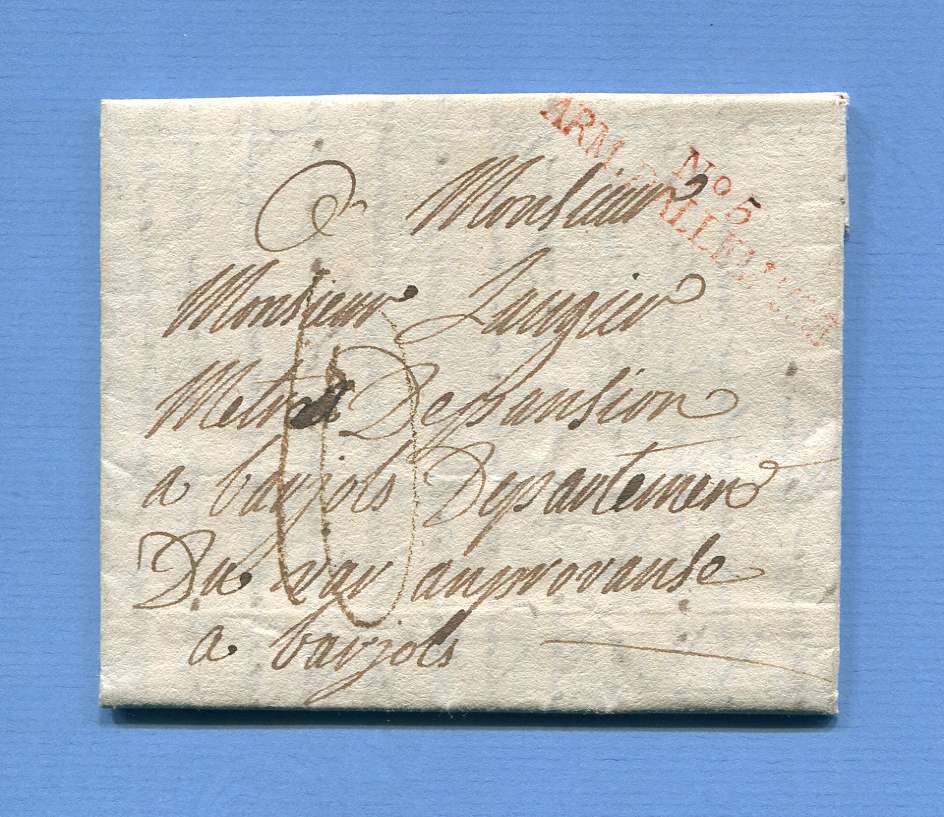 No 5
ARM. D'ALLEMAGNE
A Monsieur
Monsieur Laugier
Metre Depansion
a barjols Departemen
Du var anprovanse
a barjols
10